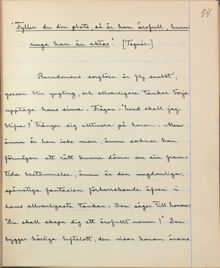 54
"Fyller du din plats, så är han ärofull, huru
ringa han än aktas." [Tegnér.]
Barndomens sorglösa år fly snabbt,
gossen blir yngling, och allvarligare tankar börja
upptaga hans sinne. Frågan "hvad skall jag
blifva?" tränger sig alltmera på honom. Men
ännu är han icke man, ännu saknar han
förmågan att rätt kunna döma om sin fram-
tida bestämmelse, ännu är den ungdomliga,
spänstiga fantasien förherrskande äfven i
hans allvarligaste tankar. Den säger till honom:
"Du skall skapa dig ett ärofullt namn!" Den
bygger härliga luftslott, den visar honom ärans